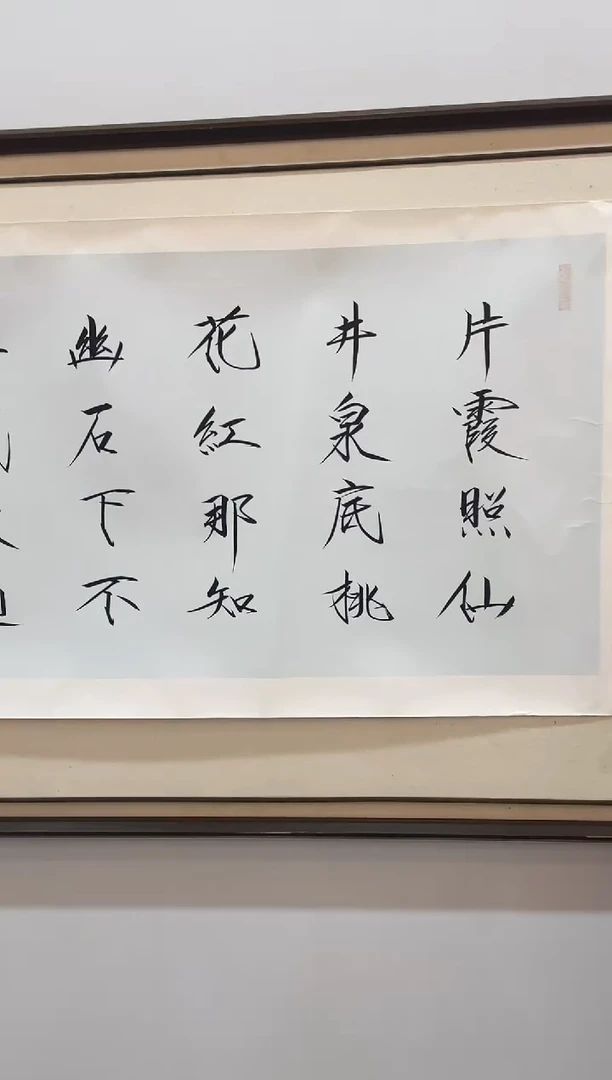 片霞照仙
井泉底桃
花红那知
幽石下不